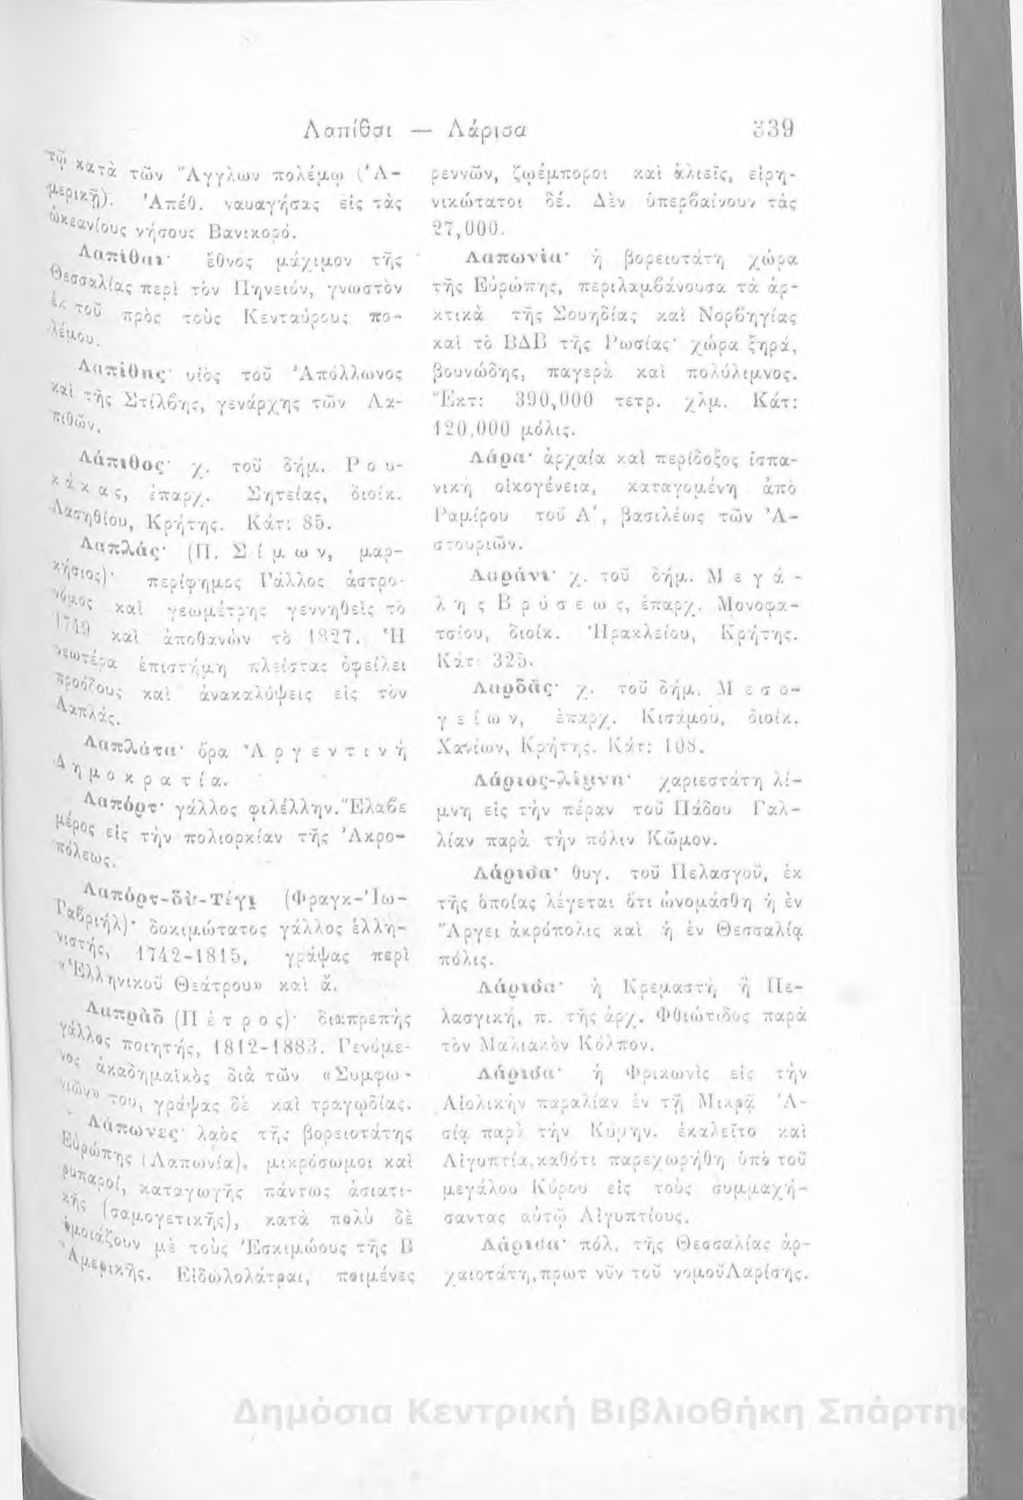 Λαπίθαι — Λάρισα 339
τῷ κατὰ τῶν Ἄγγλων πολέμῳ (Ἀ-
μερικῇ). Ἀπέθ. ναυαγήσας εἰς τὰς
ὠκεανίους νήσους Βανικορό.
Λαπίθαι· ἔθνος μάχιμον τῆς
Θεσσαλίας περὶ τὸν Πηνειόν, γνωστὸν
ἐκ τοῦ πρὸς τοὺς Κενταύρους πο-
λέμου.
Λαπίθης· υἱὸς τοῦ Ἀπόλλωνος
καὶ τῆς Στίλβης, γενάρχης τῶν Λα-
πιθῶν.
Λάπιθος· χ. τοῦ δήμ. Ρου-
κάκας, ἐπαρχ. Σητείας, διοίκ.
Λασηθίου, Κρήτης. Κάτ: 85.
Λαπλάς· (Π. Σίμων, μαρ-
κήσιος)· περίφημος Γάλλος ἀστρο-
νόμος καὶ γεωμέτρης γεννηθεὶς τὸ
1749 καὶ ἀποθανὼν τὸ 1827. Ἡ
νεωτέρα ἐπιστήμη πλείστας ὀφείλει
προόδους καὶ ἀνακαλύψεις εἰς τὸν
Λαπλάς.
Λαπλάτα· ὅρα Ἀργεντινὴ
Δημοκρατία.
Λαπόρτ· γάλλος φιλέλλην. Ἔλαβε
μέρος εἰς τὴν πολιορκίαν τῆς Ἀκρο-
πόλεως.
Λαπόρτ-δὺ-Τέγι (Φραγκ-Ἰω-
Γαβριήλ)· δοκιμώτατος γάλλος ἑλλη-
νιστής, 1742-1815, γράψας περὶ
«Ἑλληνικοῦ Θεάτρου» καὶ ἄ.
Λαπρὰδ (Πέτρος)· διαπρεπὴς
γάλλος ποιητής, 1812-1883. Γενόμε-
νος ἀκαδημαϊκὸς διὰ τῶν «Συμφω-
νιῶν» του, γράψας δὲ καὶ τραγῳδίας.
Λάπωνες· λαὸς τῆς βορειοτάτης
Εὐρώπης (Λαπωνία), μικρόσωμοι καὶ
ρυπαροί, καταγωγῆς πάντως ἀσιατι-
κῆς (σαμογετικῆς), κατὰ πολὺ δὲ
ὁμοιάζουν μὲ τοὺς Ἐσκιμώους τῆς Β
Ἀμερικῆς. Εἰδωλολάτραι, ποιμένες
ρεννῶν, ζῳέμποροι καὶ ἁλιεῖς, εἰρη-
νικώτατοι δέ. Δὲν ὑπερβαίνουν τὰς
27,000.
Λαπωνία· ἡ βορειοτάτη χώρα
τῆς Εὐρώπης, περιλαμβάνουσα τὰ ἀρ-
κτικὰ τῆς Σουηδίας καὶ Νορβηγίας
καὶ τὸ ΒΔΒ τῆς Ρωσίας· χώρα ξηρά,
βουνώδης, παγερὰ καὶ πολύλιμνος.
Ἔκτ: 390,000 τετρ. χλμ. Κάτ:
120,000 μόλις.
Λάρα· ἀρχαία καὶ περίδοξος ἱσπα-
νικὴ οἰκογένεια, καταγομένη ἀπὸ
Ραμίρου τοῦ Α΄, βασιλέως τῶν Ἀ-
στουριῶν.
Λαράνι· χ. τοῦ δήμ. Μεγά-
λης Βρύσεως, ἐπαρχ. Μονοφα-
τσίου, διοίκ. Ἡρακλείου, Κρήτης.
Κάτ: 325.
Λαρδᾶς· χ. τοῦ δήμ. Μεσο-
γείων, ἐπαρχ. Κισάμου, διοίκ.
Χανίων, Κρήτης. Κάτ: 108.
Λάριος-λίμνη· χαριεστάτη λί-
μνη εἰς τὴν πέραν τοῦ Πάδου Γαλ-
λίαν παρὰ τὴν πόλιν Κῶμον.
Λάρισα· θυγ. τοῦ Πελασγοῦ, ἐκ
τῆς ὁποίας λέγεται ὅτι ὠνομάσθη ἡ ἐν
Ἄργει ἀκρόπολις καὶ ἡ ἐν Θεσσαλίᾳ
πόλις.
Λάρισα· ἡ Κρεμαστὴ ἢ Πε-
λασγική, π. τῆς ἀρχ. Φθιώτιδος παρὰ
τὸν Μαλιακὸν Κόλπον.
Λάρισα· ἡ Φρικωνὶς εἰς τὴν
Αἰολικὴν παραλίαν ἐν τῇ Μικρᾷ Ἀ-
σίᾳ παρὰ τὴν Κύμην. ἐκαλεῖτο καὶ
Αἰγυπτία, καθότι παρεχωρήθη ὑπὸ τοῦ
μεγάλου Κύρου εἰς τοὺς συμμαχή-
σαντας αὐτῷ Αἰγυπτίους.
Λάρισα· πόλ. τῆς Θεσσαλίας ἀρ-
χαιοτάτη, πρωτ νῦν τοῦ νομοῦ Λαρίσης.
Δημόσια Κεντρική Βιβλιοθήκη Σπάρτης